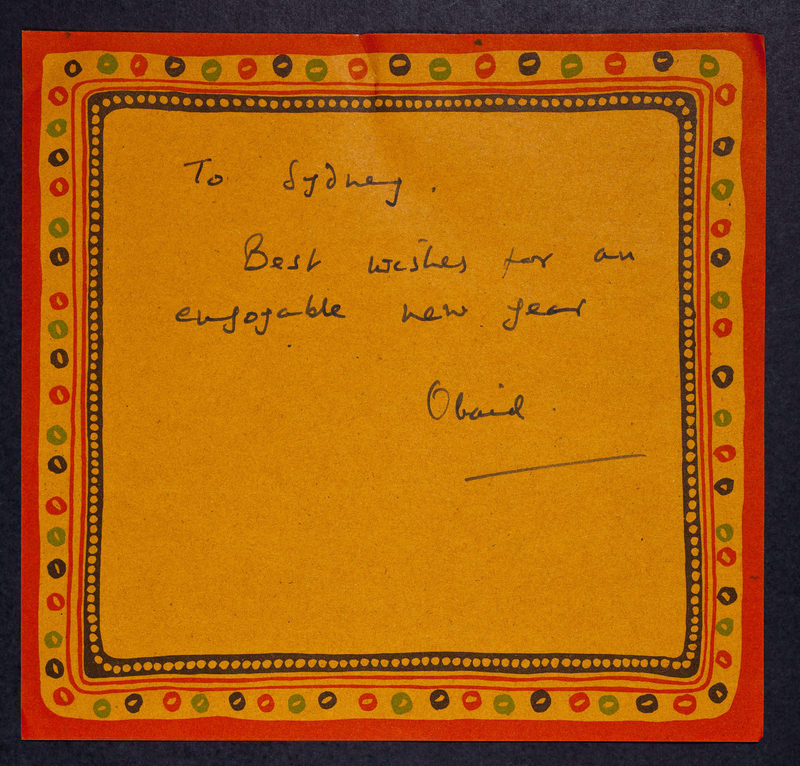 To Sydney.
Best wishes for an
enjoyable new year
Obaid